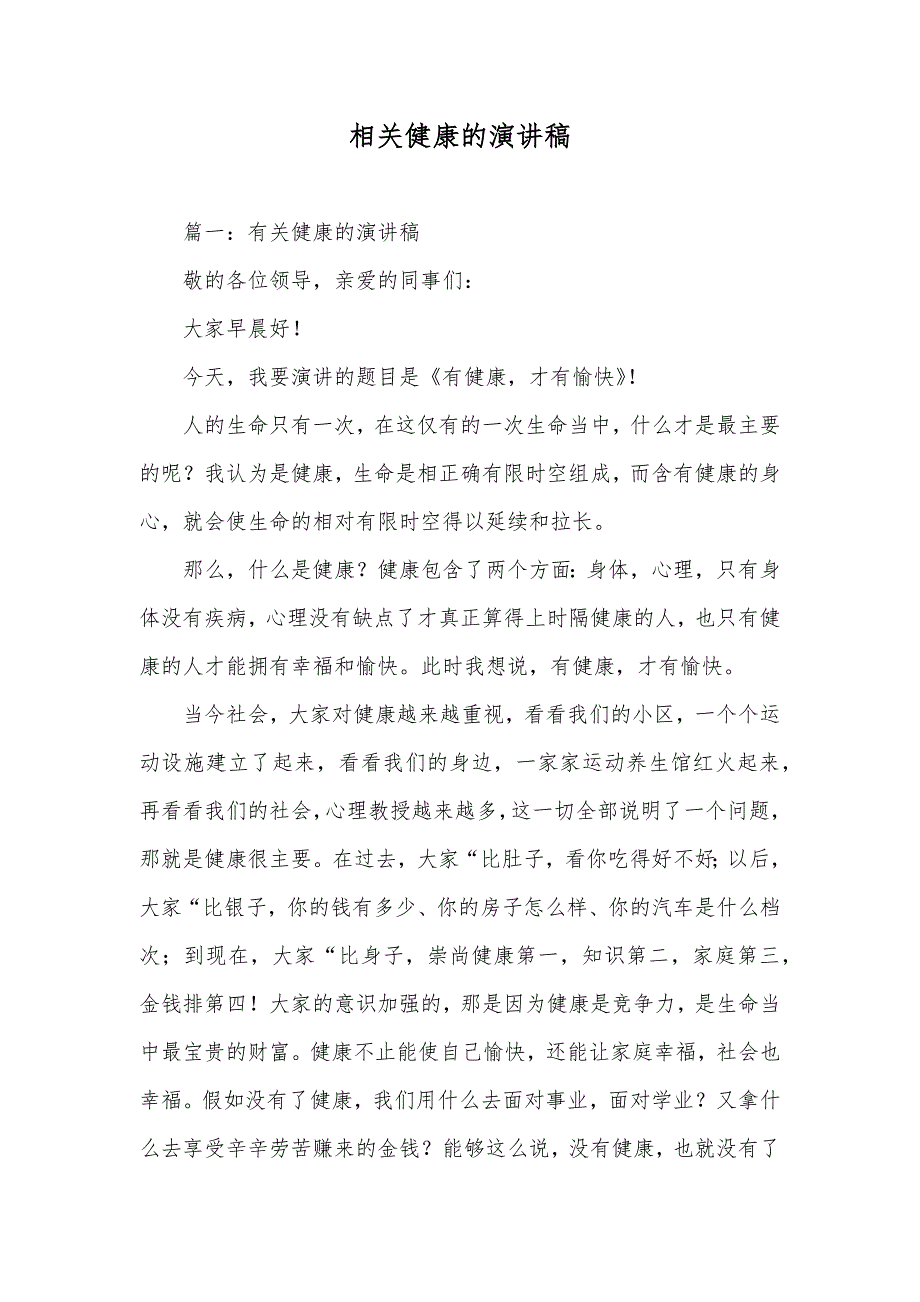 相关健康的演讲稿
篇一：有关健康的演讲稿
敬的各位领导，亲爱的同事们：
大家早晨好！
今天，我要演讲的题目是《有健康，才有愉快》！
人的生命只有一次，在这仅有的一次生命当中，什么才是最主要
的呢？我认为是健康，生命是相正确有限时空组成，而含有健康的身
心，就会使生命的相对有限时空得以延续和拉长。
那么，什么是健康？健康包含了两个方面：身体，心理，只有身
体没有疾病，心理没有缺点了才真正算得上时隔健康的人，也只有健
康的人才能拥有幸福和愉快。此时我想说，有健康，才有愉快。
当今社会，大家对健康越来越重视，看看我们的小区，一个个运
动设施建立了起来，看看我们的身边，一家家运动养生馆红火起来，
再看看我们的社会，心理教授越来越多，这一切全部说明了一个问题，
那就是健康很主要。在过去，大家“比肚子，看你吃得好不好；以后，
大家“比银子，你的钱有多少、你的房子怎么样、你的汽车是什么档
次；到现在，大家“比身子，崇尚健康第一，知识第二，家庭第三，
金钱排第四！大家的意识加强的，那是因为健康是竞争力，是生命当
中最宝贵的财富。健康不止能使自己愉快，还能让家庭幸福，社会也
幸福。假如没有了健康，我们用什么去面对事业，面对学业？又拿什
么去享受辛辛劳苦赚来的金钱？能够这么说，没有健康，也就没有了